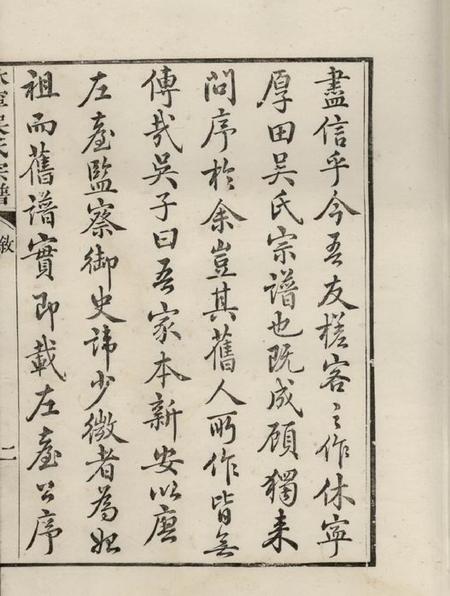 盡信乎今吾友槎客之作休寧
厚田吳氏宗譜也既成顧獨来
問序於余豈其舊人所作皆無
傳哉吳子曰吾家本新安以唐
左臺監察御史諱少微者為始
祖而舊譜實即載左臺公序
休寧吳氏宗譜
敘
二